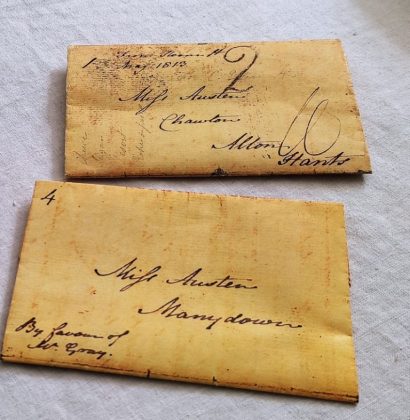 May 1813
Miss Austen
Chawton
Alton
Hants
4
Miss Austen
Manydown
By favour of
Mr. Gray.